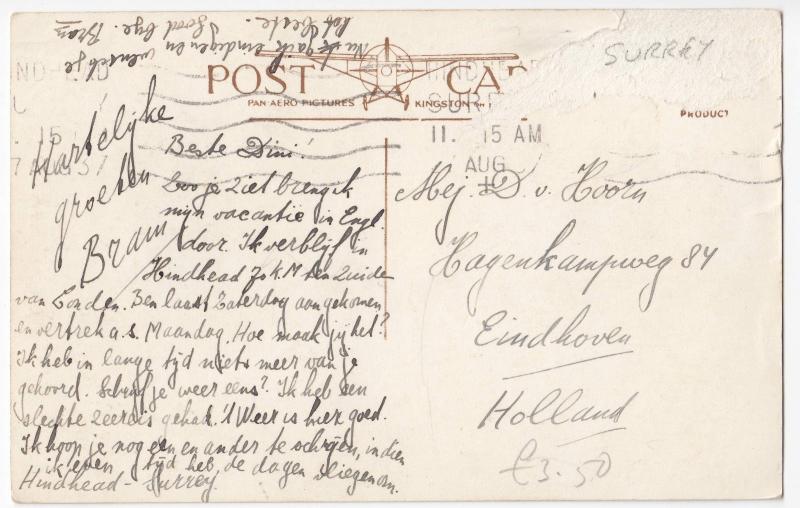 Nu ik ga eindigen en wensch je
het beste. Good bye. Bram
POST CA
PAN AERO PICTURES KINGSTON
PRODUCT
SURREY
HINDHEAD
SUR
11. 15 AM
AUG
Hartelijke
groeten
Bram
Beste Dini!
Zoo je ziet breng ik
mijn vacantie in Engl.
door. Ik verblijf in
Hindhead 70 K.M ten Zuide
van Londen. Ben laatst Zaterdag aangekomen
en vertrek a.s. Maandag. Hoe maak jij het?
Ik heb in lange tijd niets meer van je
gehoord. Schrijf je weer eens? Ik heb een
slechte zeereis gehad. 't Weer is hier goed.
Ik hoop je nog een en ander te schrijven, indien
ik even tijd heb, de dagen vliegen om.
Hindhead - Surrey
Mej. D. v. Hoorn
Hagenkampweg 84
Eindhoven
Holland
£3.50